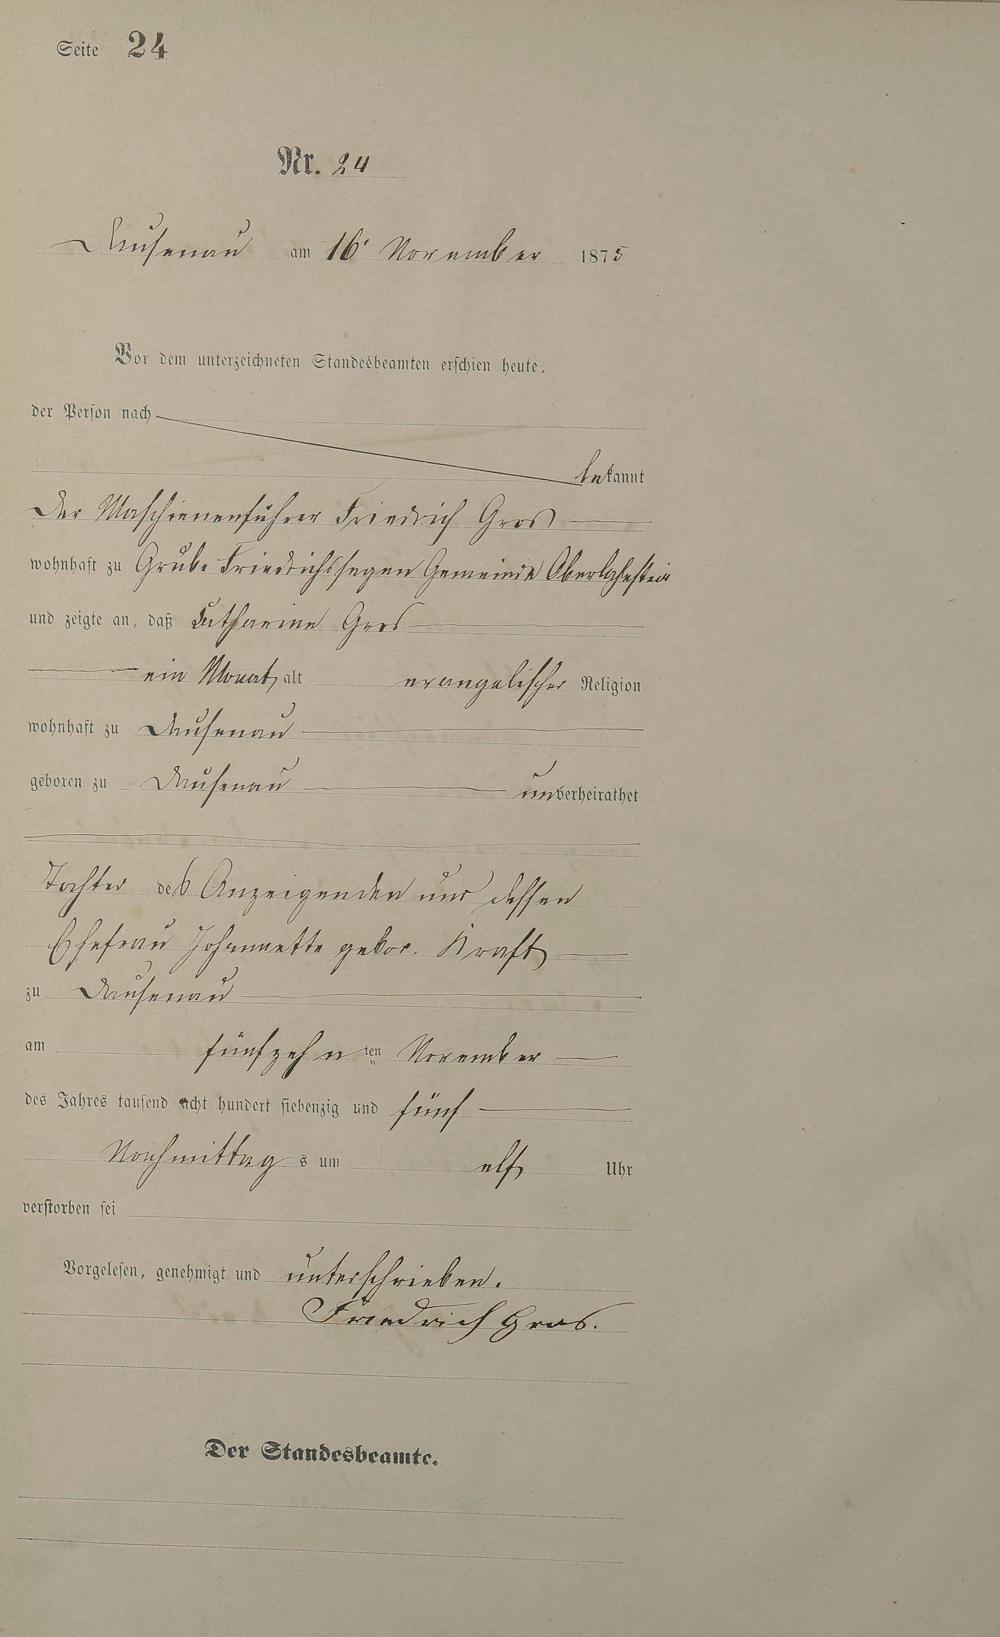 Seite 24
Nr. 24
Dausenau am 16' November 1875
Vor dem unterzeichneten Standesbeamten erschien heute,
der Person nach
bekannt
der Maschienenführer Friedrich Gros
wohnhaft zu Grube Friedrichssegen Gemeinde Oberlahnstein
und zeigte an, daß Catharine Gros
ein Monat, alt evangelischer Religion
wohnhaft zu Dausenau
geboren zu Dausenau unverheirathet
Tochter des Anzeigenden und dessen
Ehefrau Johannette gebor. Kraft
zu Dausenau
am fünfzehnten November
des Jahres tausend acht hundert siebenzig und fünf
Nachmittags um elf Uhr
verstorben sei
Vorgelesen, genehmigt und unterschrieben.
Friedrich Gros.
Der Standesbeamte.